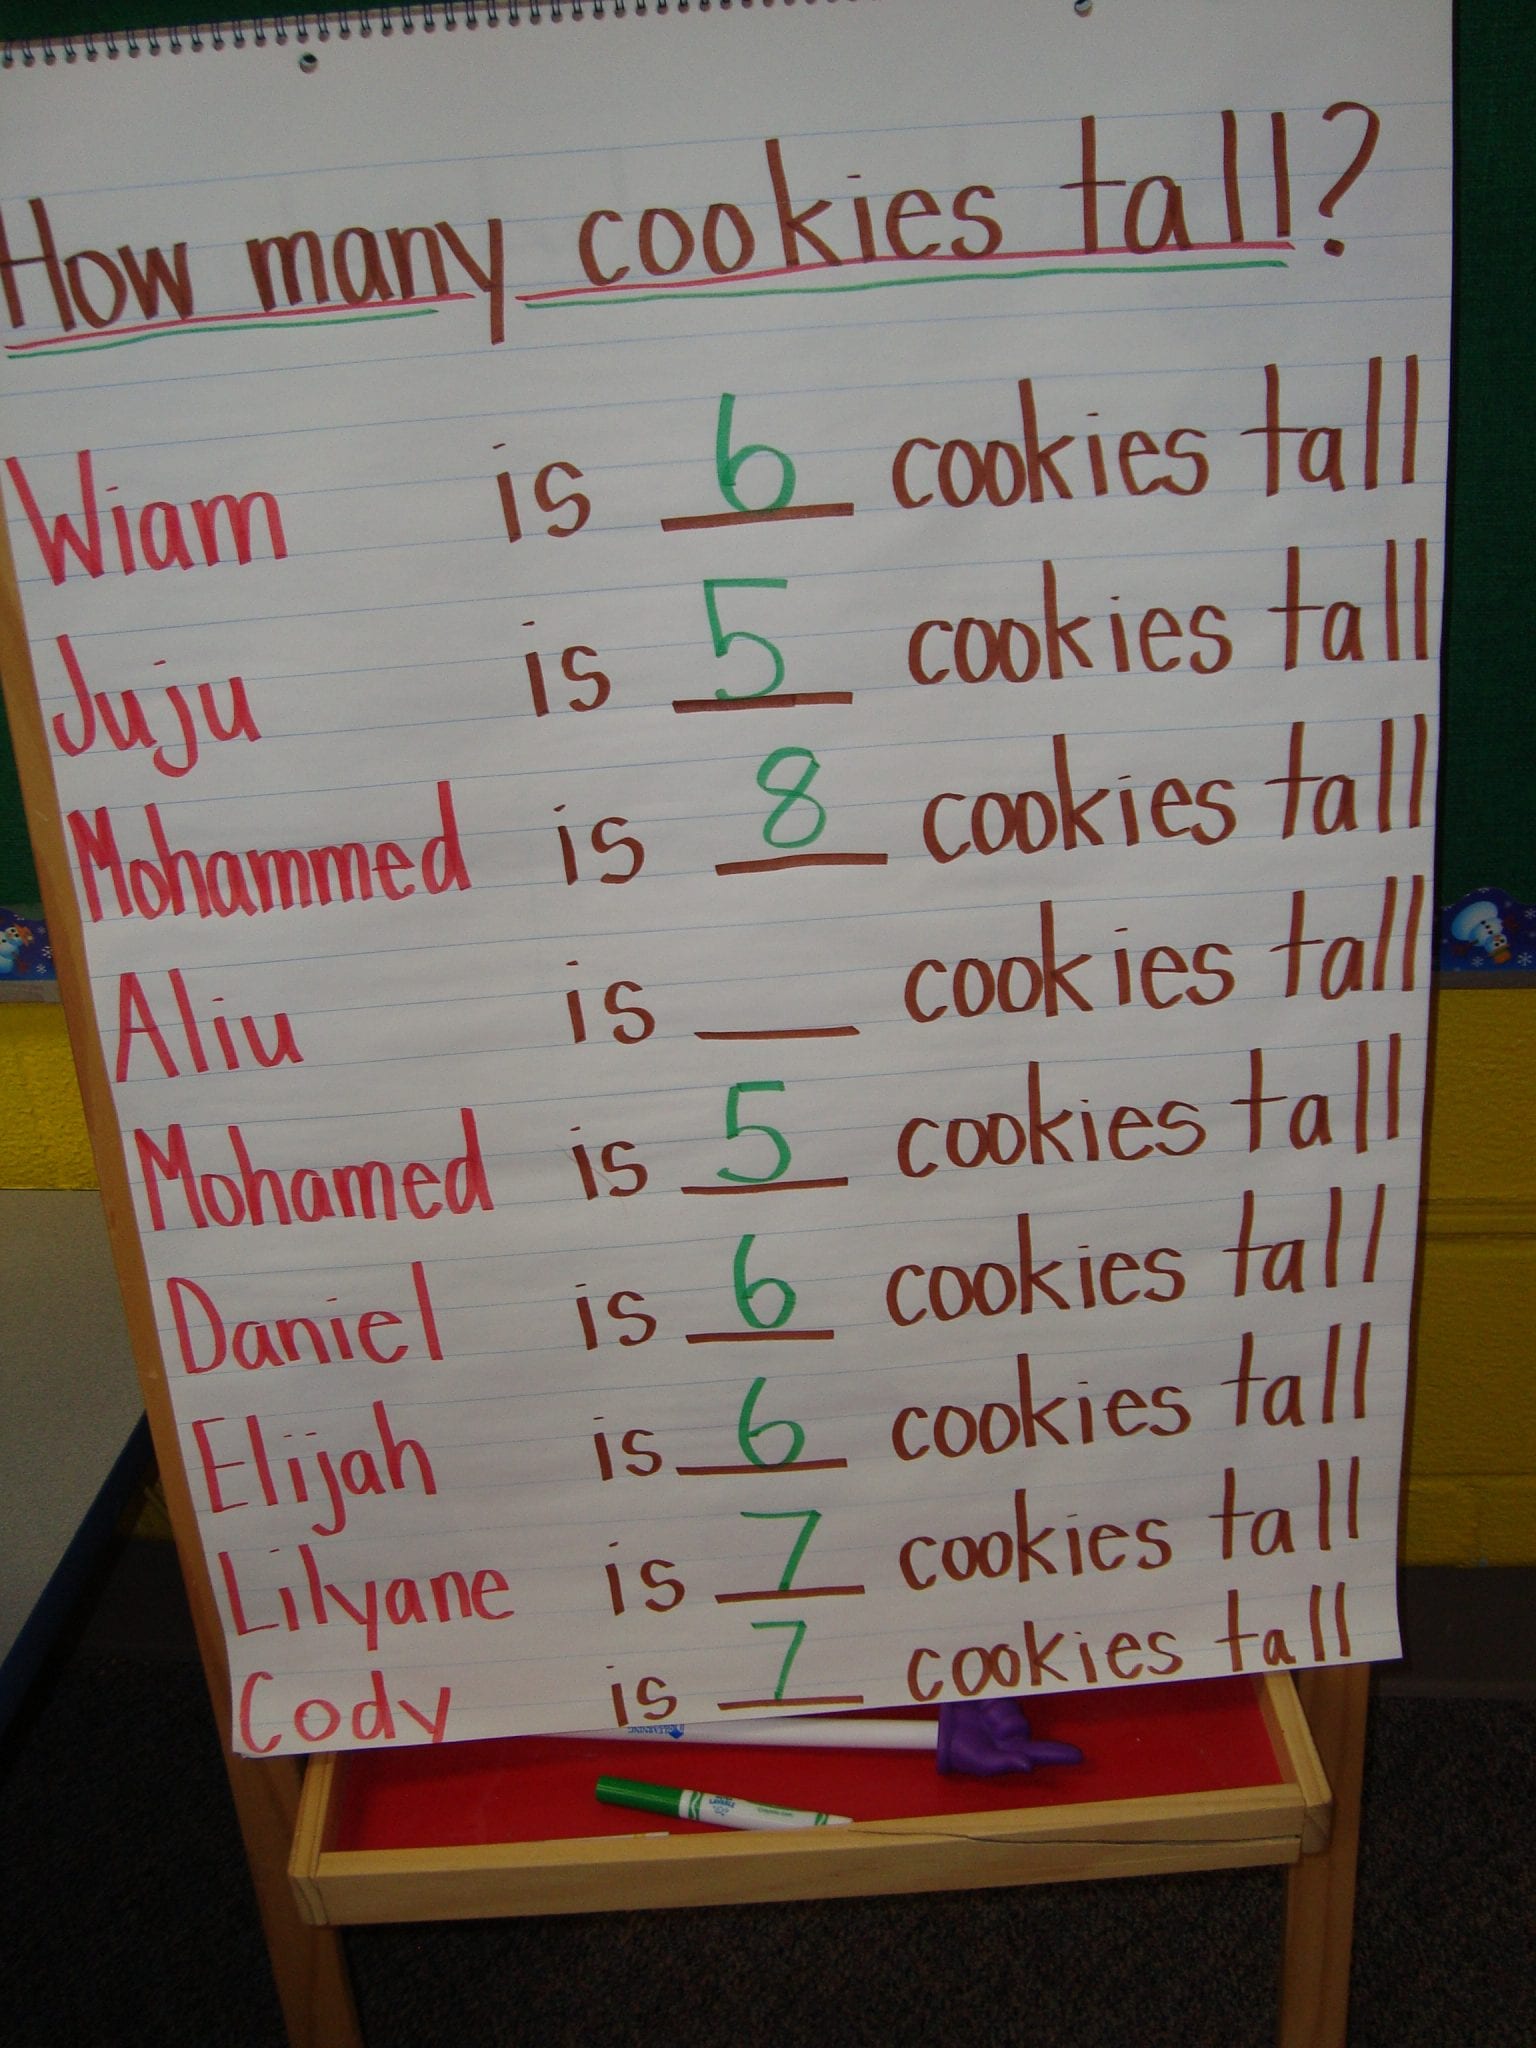 How many cookies tall?
Wiam is 6 cookies tall
Juju is 5 cookies tall
Mohammed is 8 cookies tall
Aliu is ___ cookies tall
Mohamed is 5 cookies tall
Daniel is 6 cookies tall
Elijah is 6 cookies tall
Lilyane is 7 cookies tall
Cody is 7 cookies tall